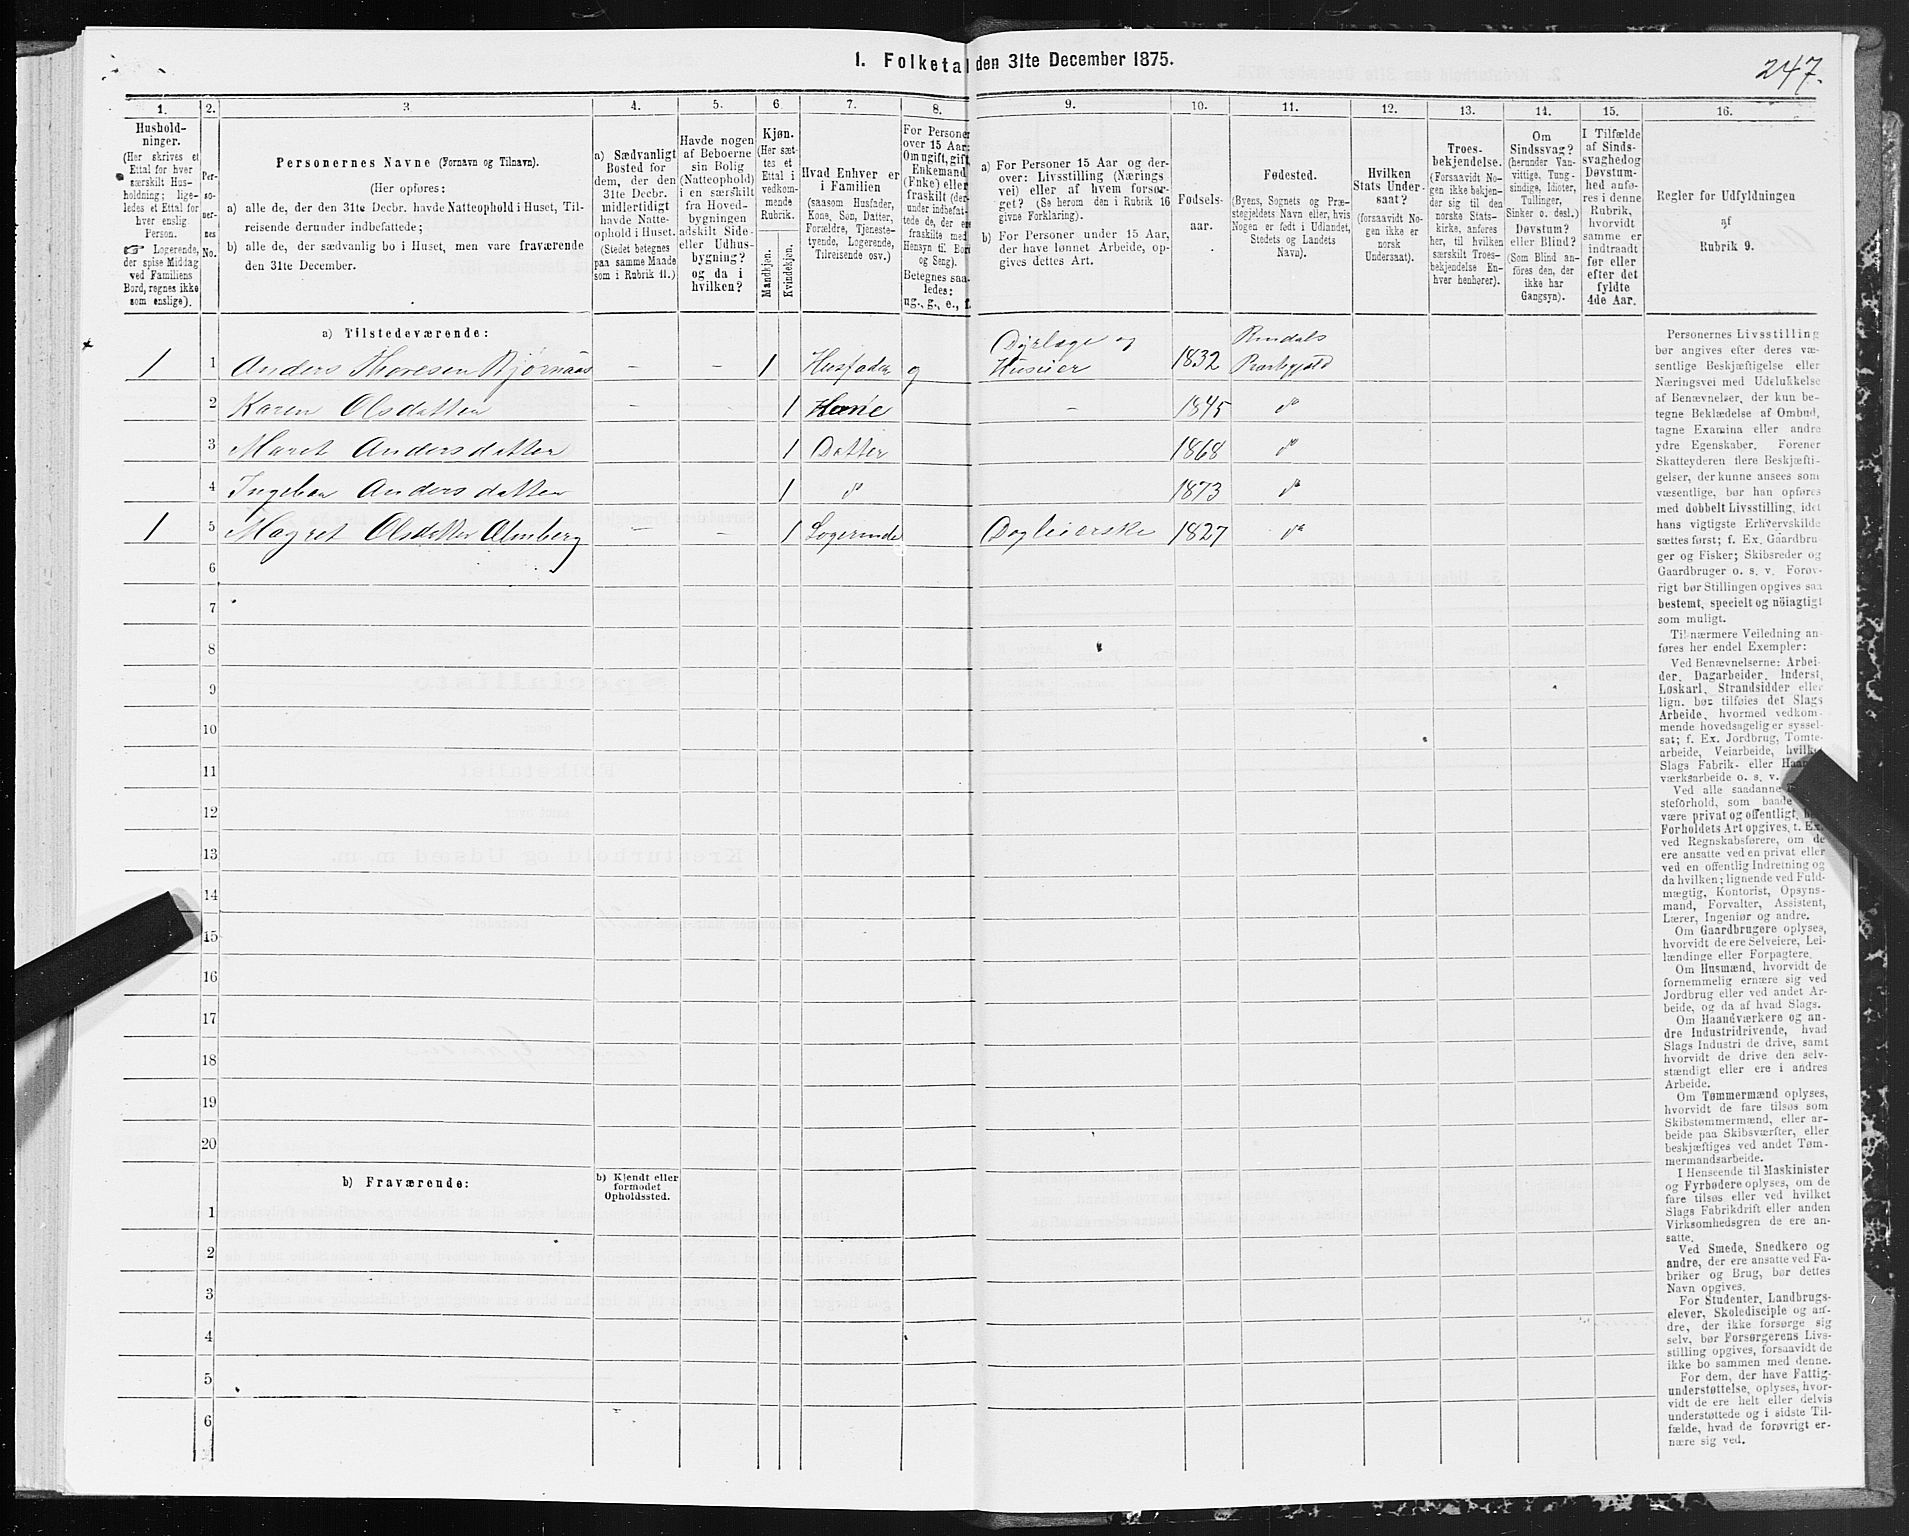 1. Folketal den 31te December 1875.
247.
1.
2.
3
4.
5.
6
7.
8.
9.
10.
11.
12.
13.
14.
15.
16.
Hushold-
ninger.
(Her skrives et
Ettal for hver
særskilt Hus-
holdning; lige-
ledes et Ettal for
hver enslig
Person.
☞ Logerende,
der spise Middag
ved Familiens
Bord, regnes ikke
som enslige).
Per-
so-
ner-
nes
No.
Personernes Navne (Fornavn og Tilnavn).
(Her opføres:
a) alle de, der den 31te Decbr. havde Natteophold i Huset, Til-
reisende derunder indbefattede;
b) alle de, der sædvanlig bo i Huset, men vare fraværende
den 31te December.
a) Sædvanligt
Bosted for
dem, der den
31te Decbr.
midlertidigt
havde Natte-
ophold i Huset.
(Stedet betegnes
paa samme Maade
som i Rubrik 11.)
Havde nogen
af Beboerne
sin Bolig
(Natteophold)
i en særskilt
fra Hoved-
bygningen
adskilt Side-
eller Udhus-
bygning?
og da i
hvilken?
Kjøn.
(Her sæt-
tes et
Ettal i
vedkom-
mende
Rubrik.
Mandkjøn.
Kvindekjøn.
Hvad Enhver er
i Familien
(saasom Husfader,
Kone, Søn, Datter,
Forældre, Tjeneste-
tyende, Logerende,
Tilreisende osv.)
For Personer
over 15 Aar:
Om ugift, gift,
Enkemand
(Enke) eller
fraskilt (der-
under indbefat-
tede de, der ere
fraskilte med
Hensyn til Bord
og Seng).
Betegnes saa-
ledes:
ug., g., e., f.
a) For Personer 15 Aar og der-
over: Livsstilling (Nærings-
vei) eller af hvem forsør-
get? (Se herom den i Rubrik 16
givne Forklaring).
b) For Personer under 15 Aar,
der have lønnet Arbeide, op-
gives dettes Art.
Fødsels-
aar.
Fødested.
(Byens, Sognets og Præ-
stegjeldets Navn eller, hvis
Nogen er født i Udlandet,
Stedets og Landets
Navn).
Hvilken
Stats Under-
saat?
(forsaavidt No-
gen ikke er
norsk
Undersaat).
Troes-
bekjendelse.
(Forsaavidt No-
gen ikke bekjen-
der sig til den
norske Stats-
kirke, anføres
her, til hvilken
særskilt Troes-
bekjendelse En-
hver henhører).
Om
Sindssvag?
(herunder Van-
vittige, Tung-
sindige, Idioter,
Tullinger,
Sinker o. desl.)
Døvstum?
eller Blind?
(Som Blind an-
føres den, der
ikke har
Gangsyn).
I Tilfælde
af Sinds-
svaghed og
Døvstum-
hed anfø-
res i denne
Rubrik,
hvorvidt
samme er
indtraadt
før eller
efter det
fyldte
4de Aar.
Regler for Udfyldningen
af
Rubrik 9.
a) Tilstedeværende:
1 1 Anders Thoresen Bjørnaas - - 1 Husfader g Dyrlæge og Huseier 1832 Rindals Præstegjæld
2 Karen Olsdatter - - 1 Kone - 1845 do
3 Maret Andersdatter 1 Datter 1868 do
4 Ingebor Andersdatter 1 do 1873 do
1 5 Magret Olsdatter Almberg - - 1 Logerende Dagleierske 1827 do
6
7
8
9
10
11
12
13
14
15
16
17
18
19
20
b) Fraværende:
b) Kjendt eller
formodet
Opholdssted.
1
2
3
4
5
6
Personernes Livsstilling
bør angives efter deres væ-
sentlige Beskjæftigelse eller
Næringsvei med Udelukkelse
af Benævnelser, der kun be-
tegne Beklædelse af Ombud,
tagne Examina eller andre
ydre Egenskaber. Forener
Skatteyderen flere Beskjæfti-
gelser, der kunne ansees som
væsentlige, bør han opføres
med dobbelt Livsstilling, idet
hans vigtigste Erhvervskilde
sættes først; f. Ex. Gaardbru-
ger og Fisker; Skibsreder og
Gaardbruger o. s. v. Forøv-
rigt bør Stillingen opgives saa
bestemt, specielt og nöiagtigt
som muligt.
Til nærmere Veiledning an-
føres her endel Exempler:
Ved Benævnelserne: Arbei-
der, Dagarbeider, Inderst,
Løskarl, Strandsidder eller
lign. bør tilføies det Slags
Arbeide, hvormed vedkom-
mende hovedsagelig er syssel-
sat; f. Ex. Jordbrug, Tomte-
arbeide, Veiarbeide, hvilket
Slags Fabrik- eller Haand-
værksarbeide o. s. v.
Ved alle saadanne
steforhold, som baade
være privat og offentligt, bør
Forholdets Art opgives, t. Ex.
ved Regnskabsførere, om de
ere ansatte ved en privat eller
ved en offentlig Indretning og
da hvilken; lignende ved Fuld-
mægtig, Kontorist, Opsyns-
mand, Forvalter, Assistent,
Lærer, Ingeniør og andre.
Om Gaardbrugere oplyses,
hvorvidt de ere Selveiere, Lei-
lændinge eller Forpagtere.
Om Husmænd, hvorvidt de
fornemmelig ernære sig ved
Jordbrug eller ved andet Ar-
beide, og da af hvad Slags.
Om Haandværkere og an-
dre Industridrivende, hvad
Slags Industri de drive, samt
hvorvidt de drive den selv-
stændigt eller ere i andres
Arbeide.
Om Tømmermænd oplyses,
hvorvidt de fare tilsøs som
Skibstømmermænd, eller ar-
beide paa Skibsværfter, eller
beskjæftiges ved andet Tøm-
mermandsarbeide.
I Henseende til Maskinister
og Fyrbødere oplyses, om de
fare tilsøs eller ved hvilket
Slags Fabrikdrift eller anden
Virksomhedsgren de ere an-
satte.
Ved Smede, Snedkere og
andre, der ere ansatte ved Fa-
briker og Brug, bør dettes
Navn opgives.
For Studenter, Landbrugs-
elever, Skoledisciple og an-
dre, der ikke forsørge sig
selv, bør Forsørgerens Livs-
stilling opgives, forsaavidt de
ikke bo sammen med denne.
For dem, der have Fattig-
understøttelse, oplyses, hvor-
vidt de ere helt eller delvis
understøttede og i sidste Til-
fælde, hvad de forøvrigt er-
nære sig ved.